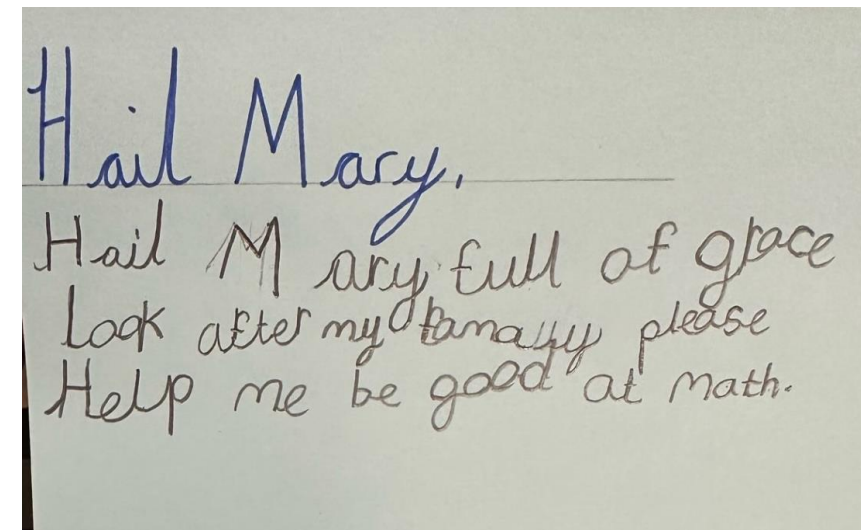 Hail Mary,
Hail Mary full of grace
Look after my famally please
Help me be good at math.